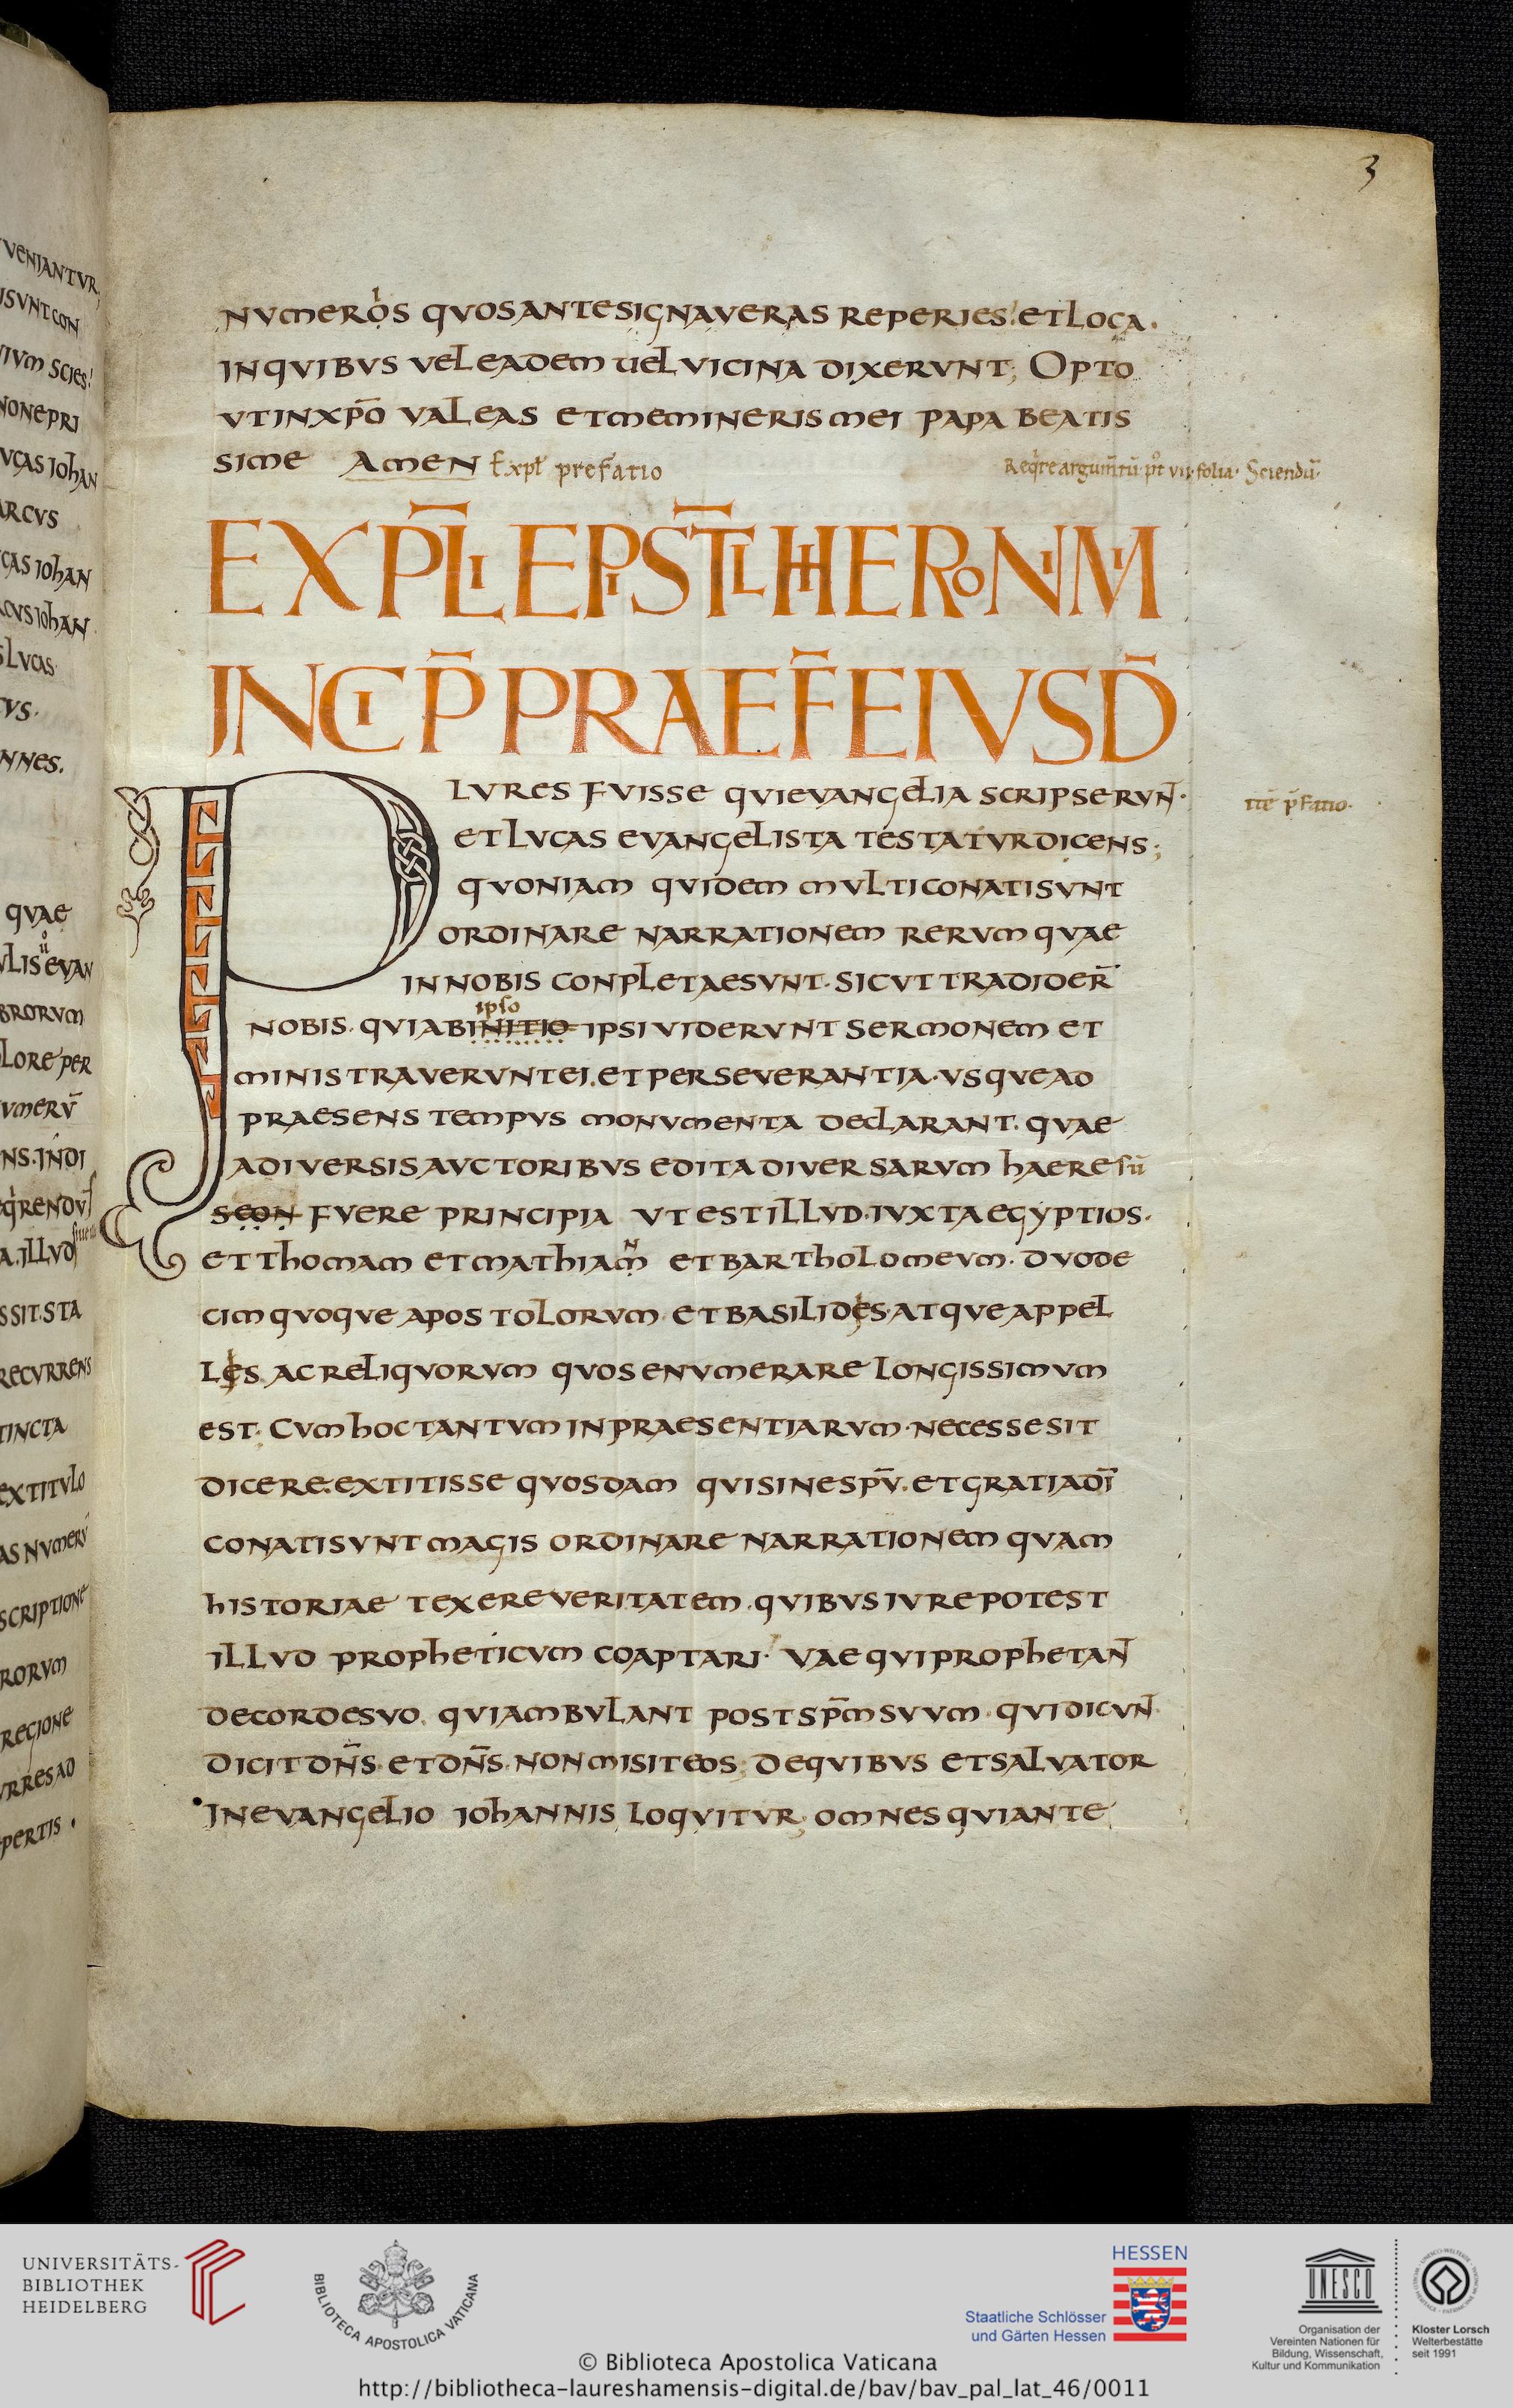 3
NUMEROS QUOS ANTE SIGNAVERAS REPERIES ET LOCA.
IN QUIBUS VEL EADEM UEL VICINA DIXERUNT; OPTO
UT IN XP̄O VALEAS ET MEMINERIS MEI PAPA BEATIS
SIME AMEN Exp̄l prefatio
EXP̄LI EPIST̄L HIERONIMI
INCIP̄ PRAEF̄ EIUSD̄
PLURES FUISSE QUI EVANGELIA SCRIPSERUN̄T.
ET LUCAS EVANGELISTA TESTATUR DICENS;
QUONIAM QUIDEM MULTI CONATI SUNT
ORDINARE NARRATIONEM RERUM QUAE
IN NOBIS CONPLETAE SUNT. SICUT TRADIDER̄
ipso
NOBIS. QUI AB INITIO IPSI VIDERUNT SERMONEM ET
MINISTRAVERUNT EI. ET PERSEVERANTIA. USQUE AD
PRAESENS TEMPUS MONUMENTA DECLARANT. QUAE
A DIVERSIS AUCTORIBUS EDITA DIVERSARUM HAERESŪ
SEON FUERE PRINCIPIA UT EST ILLUD. IUXTA EGYPTIOS.
ET THOMAM ET MATHIAM ET BARTHOLOMEUM. DUODE
CIM QUOQUE APOSTOLORUM. ET BASILIDES. ATQUE APPEL
LES. AC RELIQUORUM QUOS ENUMERARE LONGISSIMUM
EST. CUM HOC TANTUM IN PRAESENTIARUM. NECESSE SIT
DICERE. EXTITISSE QUOSDAM QUI SINE SPŪ. ET GRATIA DĪ
CONATI SUNT MAGIS ORDINARE NARRATIONEM QUAM
HISTORIAE TEXERE VERITATEM. QUIBUS IURE POTEST
ILLUD PROPHETICUM COAPTARI. VAE QUI PROPHETAN̄T
DE CORDE SUO. QUI AMBULANT POST SP̄M SUUM. QUI DICUN̄T
DICIT DN̄S. ET DN̄S. NON MISIT EOS; DE QUIBUS ET SALVATOR
IN EVANGELIO IOHANNIS LOQUITUR; OMNES QUI ANTE
UNIVERSITÄTS-
BIBLIOTHEK
HEIDELBERG
BIBLIOTECA APOSTOLICA VATICANA
HESSEN
Staatliche Schlösser
und Gärten Hessen
UNESCO
Organisation der
Vereinten Nationen für
Bildung, Wissenschaft,
Kultur und Kommunikation
Kloster Lorsch
Welterbestätte
seit 1991
© Biblioteca Apostolica Vaticana
http://bibliotheca-laureshamensis-digital.de/bav/bav_pal_lat_46/0011